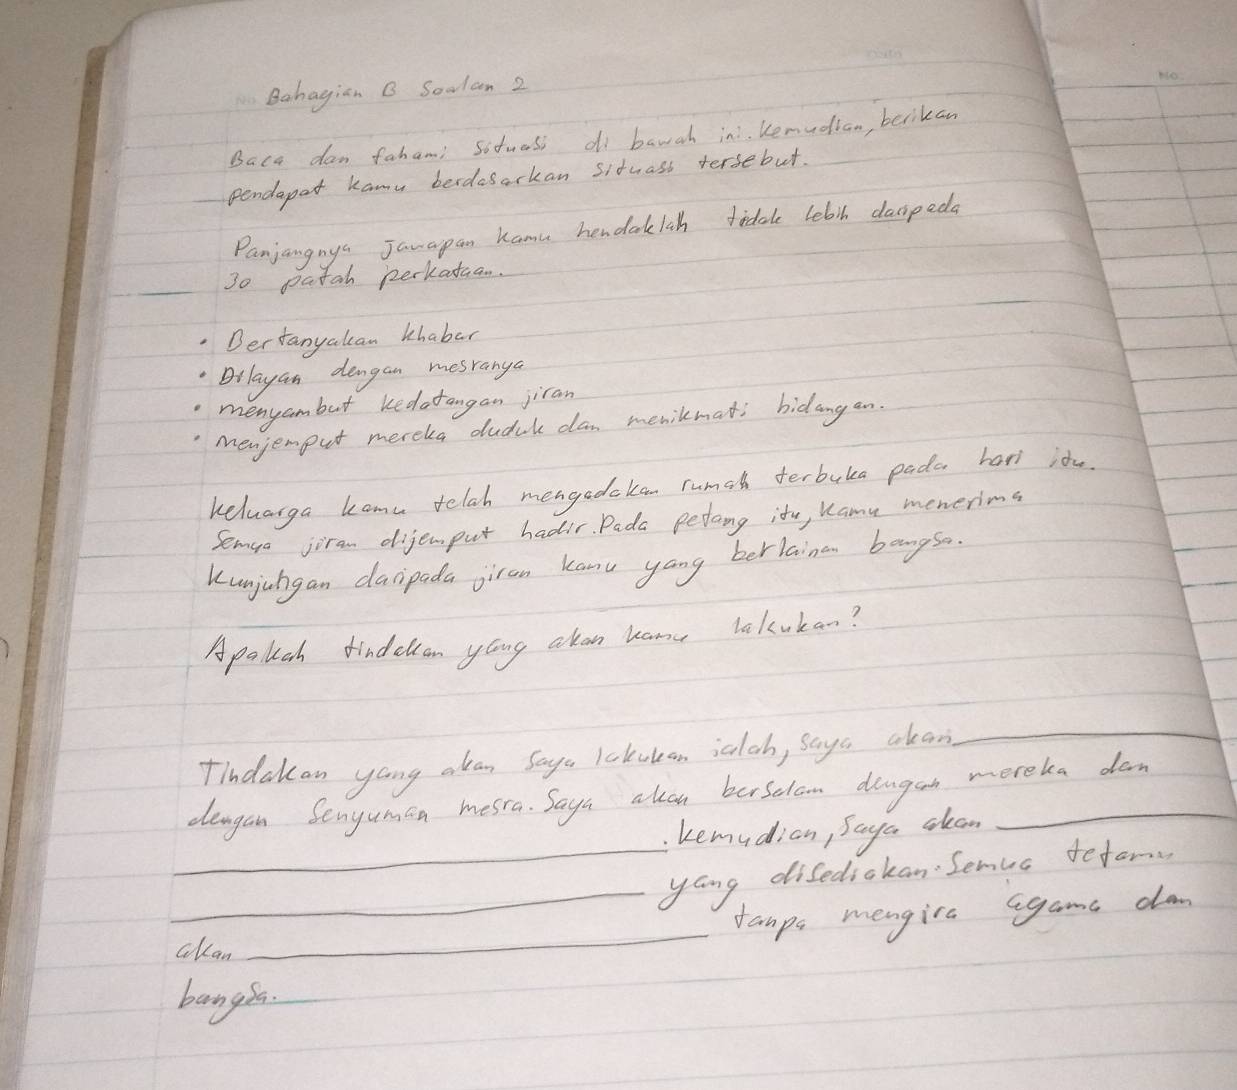 Bahagian B Soalan 2
Baca dan fahami situasi di bawah ini. Kemudian, berikan
pendapat kamu berdasarkan situasi tersebut.
Panjangnya Jawapan kamu hendaklah tidak lebih daripada
30 patah perkataan.
• Bertanyakan khabar
• Dilayan dengan mesranya
• menyambut kedatangan jiran
• menjemput mereka duduk dan menikmati hidangan.
Keluarga kamu telah mengadakan rumah terbuka pada hari itu.
Semua jiran dijemput hadir. Pada petang itu, kamu menerima
kunjungan daripada jiran kamu yang berlainan bangsa.
Apakah tindakan yang akan kamu lakukan?
Tindakan yang akan saya lakukan ialah, saya akan
dengan senyuman mesra. Saya akan bersalam dengan mereka dan
. Kemudian, saya akan
yang disediakan. Semua tetamu
akan tanpa mengira agama dan
bangsa.